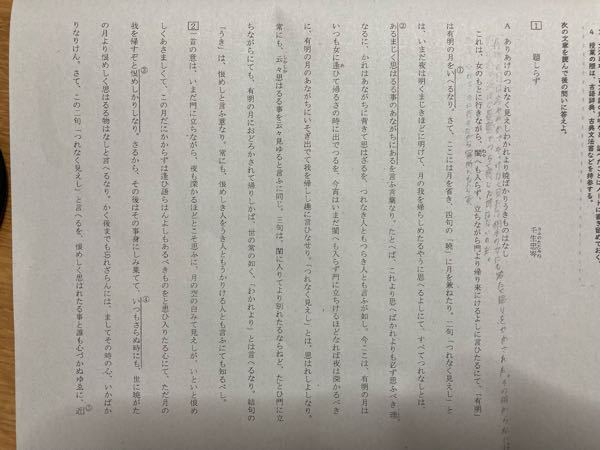 4 授業の際は、古語辞典、古典文法書などを持参する。
次の文章を読んで後の問いに答えよ。
1 題しらず
壬生忠岑
A ありあけのつれなく見えしわかれより暁ばかりうきものはなし
これは、女のもとに行きながら、閨へも入らず、立ちながら門より帰り来にけるよしに言ひたるにて、「有明」
は有明の月をいへるなり。さて、ここには月を省き、四句の「暁」に月を兼ねたり。二句「つれなく見えし」と
は、いまだ夜は明くまじきほどに明けて、月の我を帰らしめたるやうに思へるよしにて、すべてつれなしとは、
あるまじく思はるる事のあながちにあるを言ふ言葉なり。たとへば、これより思へばかれよりも必ず思ふべき理
なるに、かれはあながちに背きて思はざるを、つれなき人ともつらき人とも言ふが如し。今ここは、有明の月は
いつも女に逢ひて帰るさの時に出でつるを、今宵はいまだ閨へも入らず門に立ちけるほどなれば夜は深かるべき
に、有明の月のあながちにいそぎ出でて我を帰しし趣に言ひなせり。「つれなく見えし」とは、思はれしよしなり。
常にも、云々思はるる事を云々見ゆると言ふに同じ。三句は、閨に入りてより別れたるならねど、たとひ門に立
ちながらにても、有明の月におどろかされて帰りしかば、世の常の如く、「わかれより」とは言へるなり。結句の
「うき」は、恨めしと言ふ意なり。常にも、恨めしき人をうき人ともうかりける人とも言ふにても知るべし。
2 一首の意は、いまだ門に立ちながら、夜も深かるほどとこそ思ふに、月の空の白みて見えしが、いといと恨め
しくあさましくて、この月だになからずは道しほらんともしもあるべきものをと思ひ入りたる心にて、ただ月の
我を帰すぞと恨めしかりしなり。さるから、その後はその事身にしみ果てて、いつもさらぬ時にも、世に暁がた
の月より恨めしく思はるる物はなしと言へるなり。かく後までも忘れざらんには、ましてその時の心、いかばか
りなりけん。さて、この二句「つれなく見えし」と言へるを、恨めしく思はれたる事と誰も心づかぬゆゑに、近
①
②
③
④